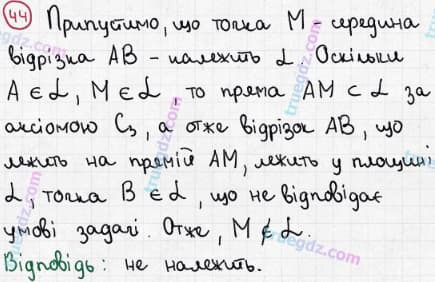 44 Припустимо, що точка M - середина
відрізка AB - належить α. Оскільки
A ∈ α, M ∈ α, то пряма AM ⊂ α за
аксіомою C₃, а отже відрізок AB, що
лежить на прямій AM, лежить у площині
α, точка B ∈ α, що не відповідає
умові задачі. Отже, M ∉ α.
Відповідь: не належить.
truegdz.com
truegdz.com
truegdz.com
truegdz.com
truegdz.com
truegdz.com